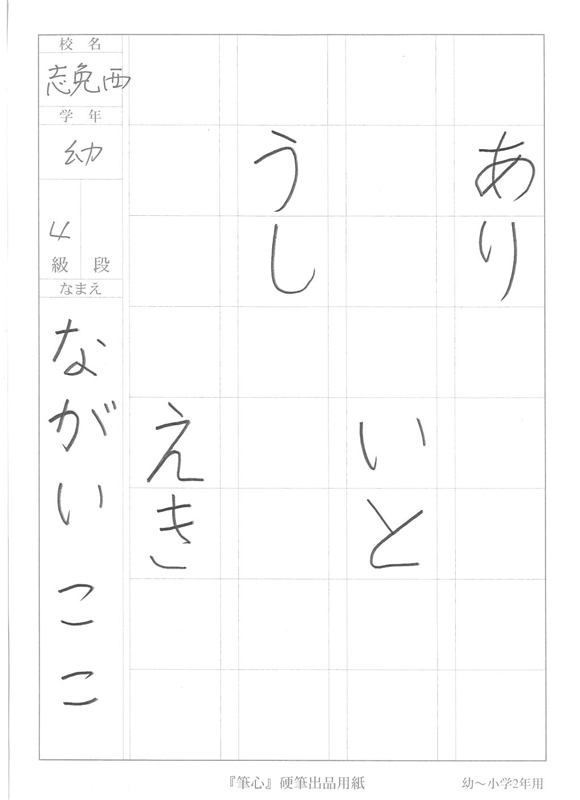 あり
いと
うし
えき
校名
志免西
学年
幼
4
級 段
なまえ
ながい ここ
『筆心』硬筆出品用紙
幼～小学2年用